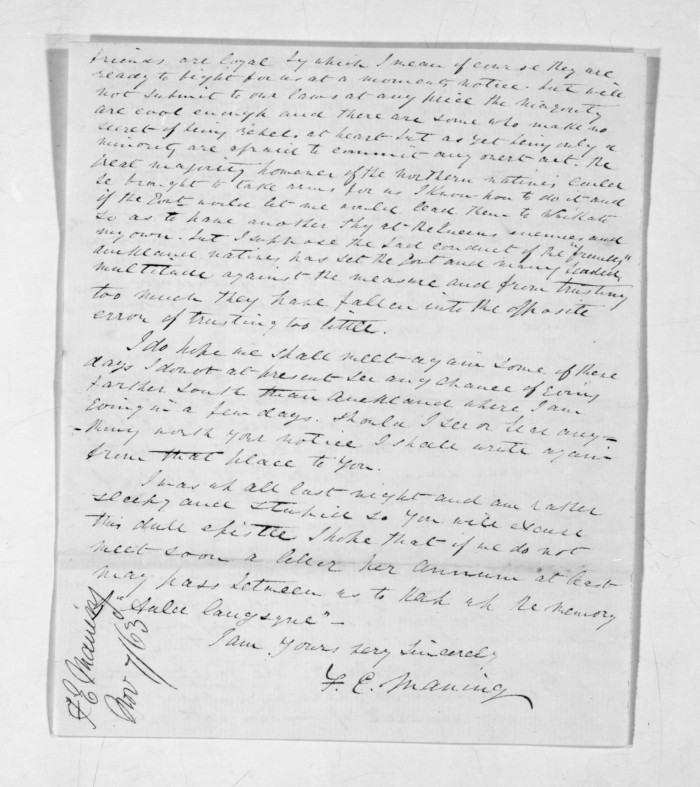 friends are loyal by which I mean of course they are
ready to fight for us at a moments notice. but will
not submit to our laws at any price the majority
are cool enough and there are some who make no
secret of being rebels at heart but as yet being only a
minority are afraid to commit any overt act. The
great majority however of the northern natives could
be brought to take arms for us I know how to do it and
if the Govt would let me would lead them to Waikato
so as to have another shy at the Queens enemies and
my own. but I suppose the bad conduct of the "friendly"
auckland natives has set the Govt and many leaded
multitude against the measure and from trusting
too much they have fallen into the opposite
error of trusting too little.
I do hope we shall meet again some of these
days I do not at present see any chance of going
farther south than Auckland where I am
going in a few days. Should I see or hear any-
-thing worth your notice I shall write again
from that place to you.
I was up all last night and am rather
sleepy and stupid so you will excuse
this dull epistle I hope that if we do not
meet soon a letter per annum at least
may pass between us to keep up the memory
of "Auld langsyne" -
I am yours very sincerely
F. E. Maning
F E Maning
Nov 7/63